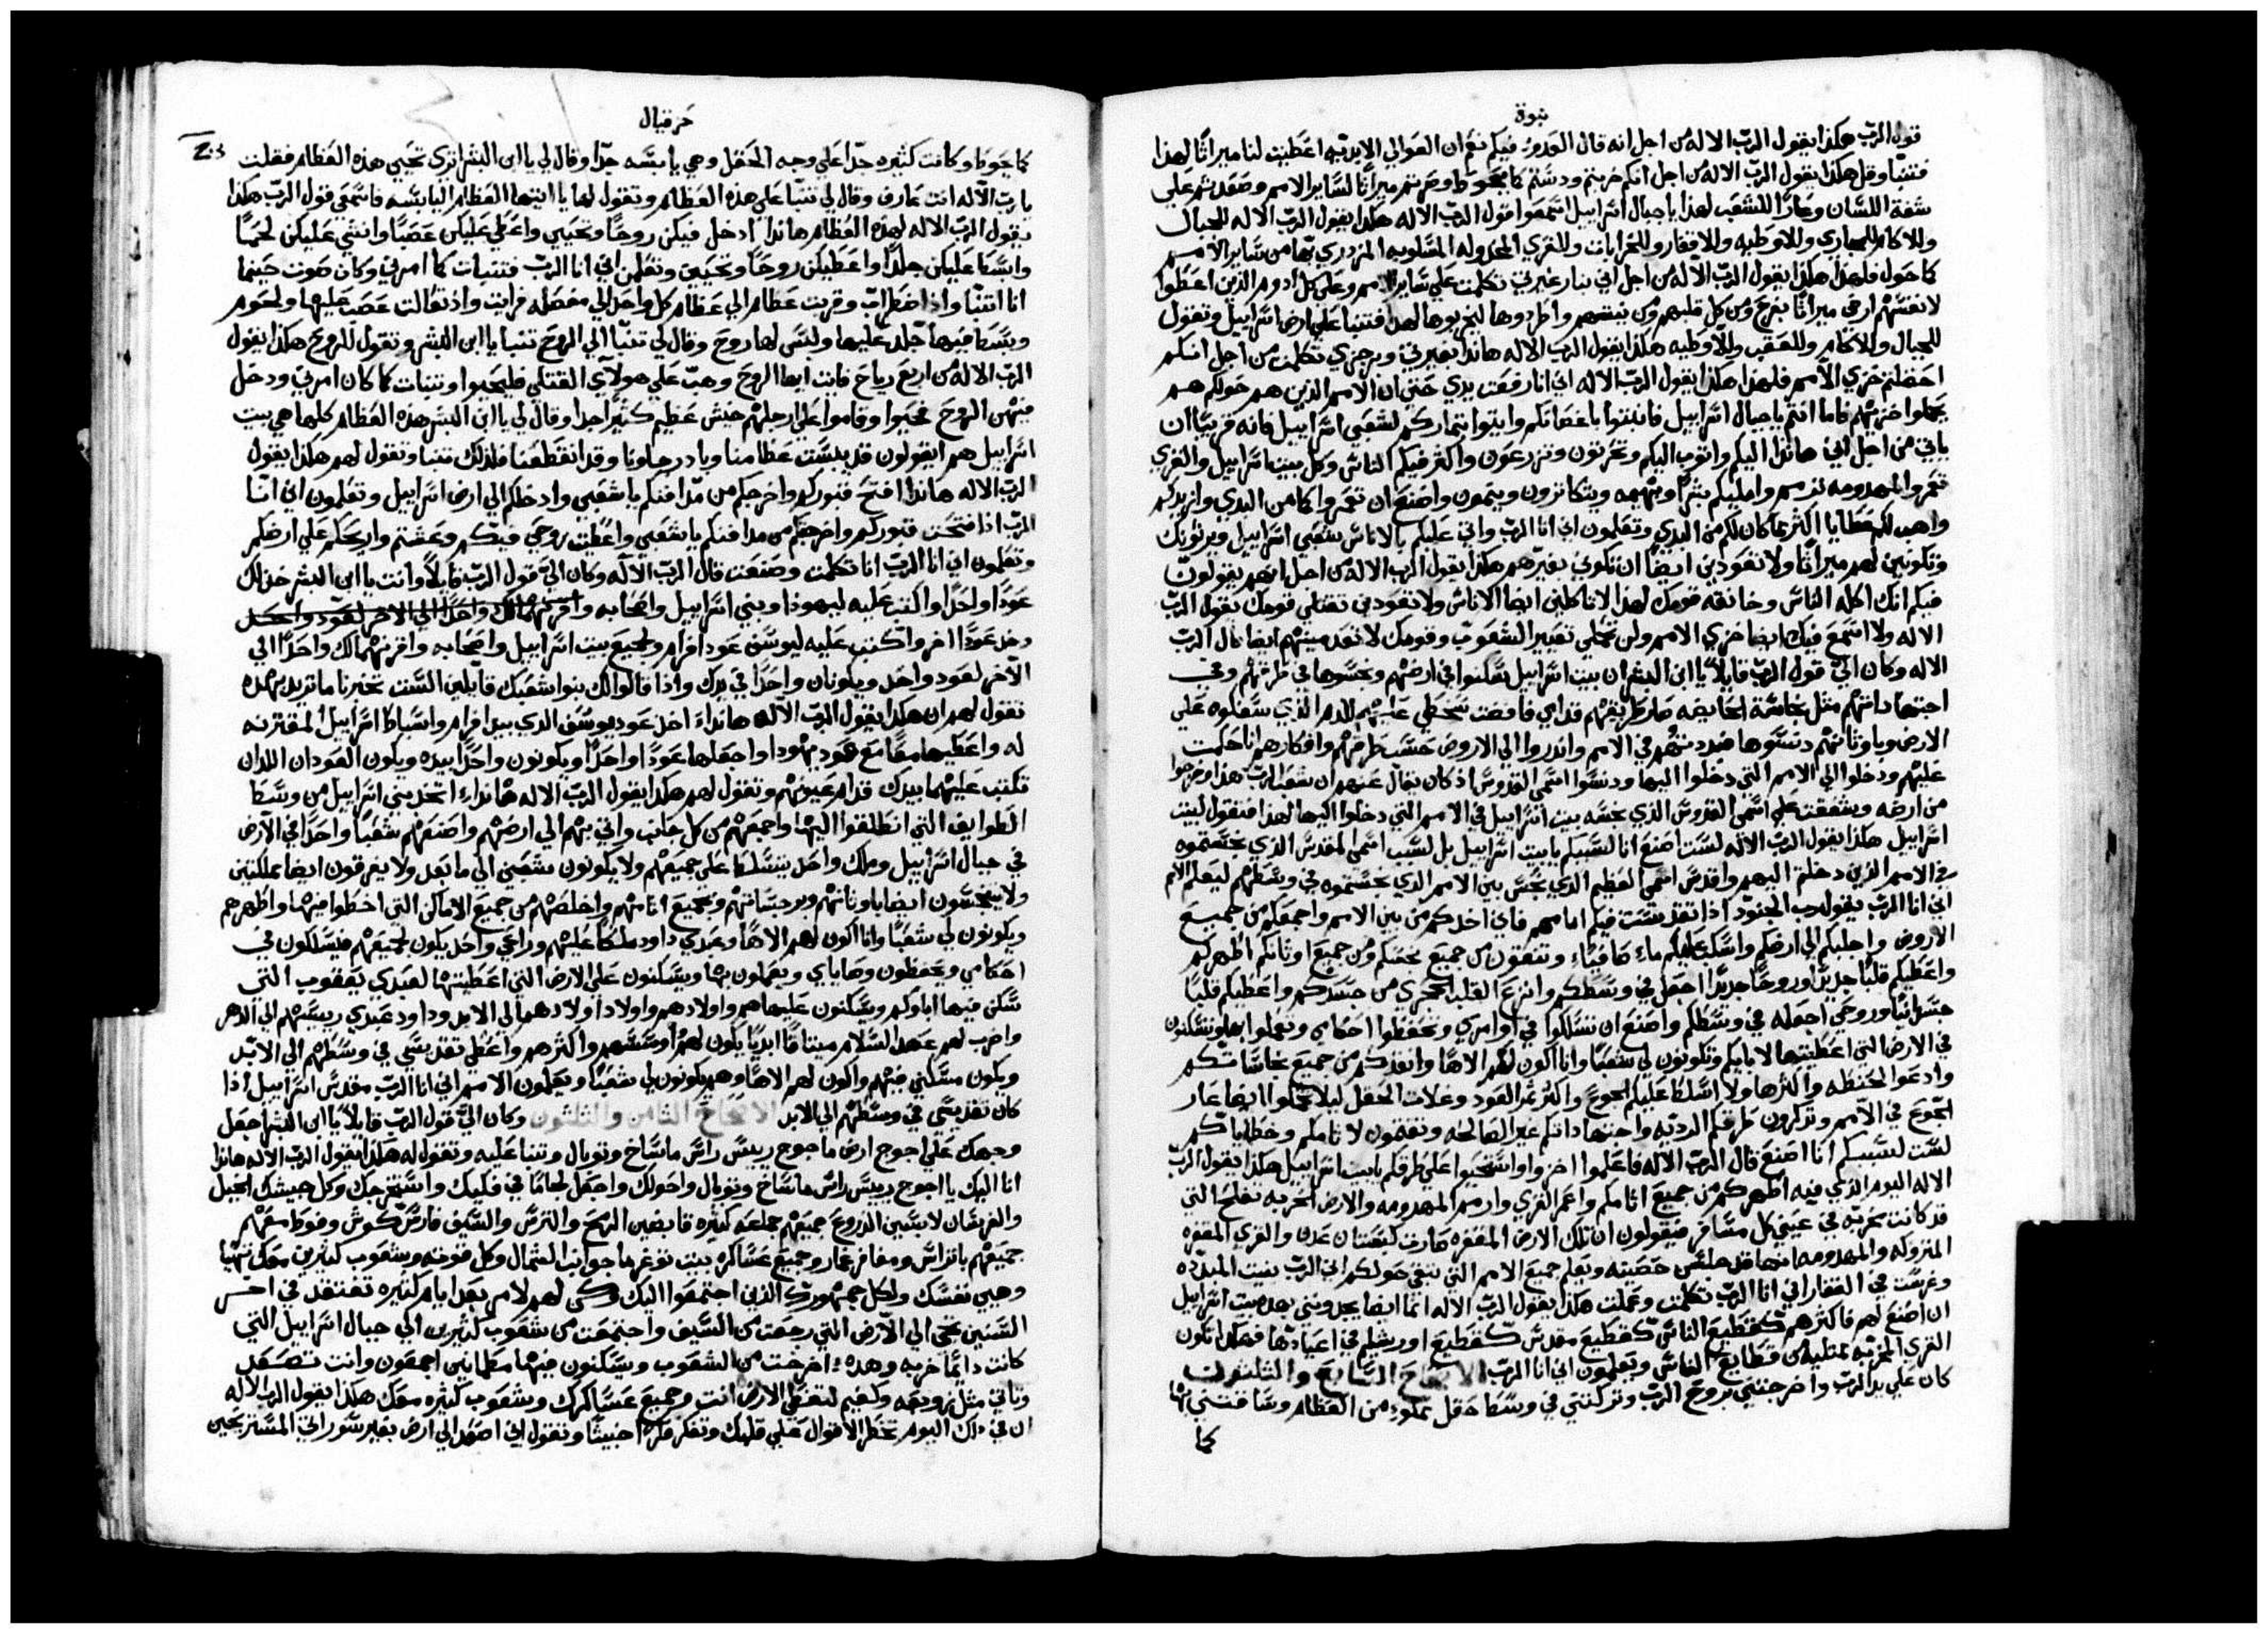 نبوة
قول الرب هكذا يقول الرب الاله من اجل انه قال العدو فيكم نعم ان العوالي الابديه اعطيت لنا ميراثا لهذا
فتنبا وقل هكذا يقول الرب الاله من اجل انكم خربتم ودستم كما يحوط وصرتم ميراثا لساير الامم وصعدتم علي
شفة اللسان وعارا للشعب لهذا يا جبال اسراييل اسمعوا قول الرب الاله هكذا يقول الرب الاله للجبال
وللاكام للمجاري وللاوطيه وللاقفار وللخرابات وللقري المخذوله المسلوبه المزدري بها من ساير الامم
كما حول فلهذا هكذا يقول الرب الاله من اجل اني بنار غيرتي تكلمت علي ساير الامم وعلي كل ادوم الذين اعطوا
لانفسهم ارضي ميراثا بفرح ومن كل قلبهم ومن نفسهم واطردوها ليخربوها لهذا فتنبا علي ارض اسراييل وتقول
للجبال وللاكام وللعقب وللاوطيه هكذا يقول الرب الاله هانذا بغيرتي وبرجزي تكلمت من اجل انكم
احتملتم خزي الامم فلهذا هكذا يقول الرب الاله اني انا رفعت يدي حتي ان الامم الذين هم حولكم هم
يحملوا خزيهم فاما انتم يا جبال اسراييل فانبتوا باغصانكم وايتوا بثماركم لشعبي اسراييل فانه قريبا ان
ياتي من اجل اني هانذا اليكم واتوب اليكم وتحرثون وتزرعون واكثر فيكم الناس وكل بيت اسراييل والقري
تعمر والمهدومه ترسم واملكم بشرا وبهيمه ويتكاثرون وينمون واصنع ان تعمروا كما من البدي وازيدكم
واهب لكم عطايا اكثر مما كان لكم من البدي وتعلمون اني انا الرب واتي عليكم بالاناس شعبي اسراييل ويرثونك
وتكونين لهم ميراثا ولا تعودين ايضا ان تكوني بغيرهم هكذا يقول الرب الاله من اجل انهم يقولون
فيكم انك اكله الناس وخانقه قومك لهذا لا تاكلين ايضا الاناس ولا تعودين تقتلي قومك يقول الرب
الاله ولا اسمع فيك ايضا خزي الامم ولن تحملي تعيير الشعوب وقومك لا تعدمينهم ايضا قال الرب
الاله وكان الي قول الرب قايلا يا ابن البشر ان بيت اسراييل سكنوا في ارضهم ونجسوها في طرقهم وفي
اجتهاداتهم مثل نجاسة الحايضه صار طريقهم قدامي فافضت سخطي عليهم للدم الذي سفكوه علي
الارض وباوثانهم دنسوها فبددتهم في الامم وانذروا الي الاروض حسب طرقهم وافكارهم انا حكمت
عليهم ودخلوا الي الامم التي دخلوا اليها ودنسوا اسمي القدوس اذ كان يقال عنهم ان شعب الرب هذا وخرجوا
من ارضه وشفقت علي اسمي القدوس الذي نجسه بيت اسراييل في الامم التي دخلوا اليها لهذا فتقول لبيت
اسراييل هكذا يقول الرب الاله لست اصنع انا لسببكم يا بيت اسراييل بل لسبب اسمي المقدس الذي نجستموه
في الامم الذين دخلتم اليهم واقدس اسمي العظيم الذي نجس بين الامم الذي نجستموه في وسطهم ليعلم الامم
اني انا الرب يقول رب الجنود اذا تقدست فيكم امامهم فاني اخذكم من بين الامم واجمعكم من جميع
الاروض واجلبكم الي ارضكم واسكب عليكم ماء صافيا وتنقون من جميع نجسكم ومن جميع اوثانكم اطهركم
واعطيكم قلبا جديدا وروحا جديدا اجعل في وسطكم وانزع القلب الحجري من جسدكم واعطيكم قلبا
جسدانيا وروحي اجعله في وسطكم واصنع ان تسلكوا في اوامري وتحفظوا احكامي وتعملوا بها وتسكنون
في الارض التي اعطيتها لابايكم وتكونون لي شعبا وانا اكون لكم الاها وانقذكم من جميع نجاساتكم
وادعو الحنطه واكثرها ولا اسلط عليكم الجوع واكثر ثمر العود وغلات الحقل ليلا تحملوا ايضا عار
الجوع في الامم وتذكرون طرقكم الرديه واجتهاداتكم غير الصالحه وتمقتون لاثامكم وخطاياكم
لست لسببكم انا اصنع قال الرب الاله فاعلموا اخزوا واستحيوا علي طرقكم يا بيت اسراييل هكذا يقول الرب
الاله اليوم الذي فيه اطهركم من جميع اثامكم واعمر القري وارمم المهدومه والارض الخربه تفلح التي
قد كانت خربه في عيني كل مسافر فيقولون ان تلك الارض المقفره صارت كبستان عدن والقري المقفره
المتروكه والمهدومه انها قد جلس حصينه وتعلم جميع الامم التي تبقي حولكم اني الرب بنيت المبدده
وغرست في القفار اني انا الرب تكلمت وعملت هكذا يقول الرب الاله انما ايضا يجدونني بهذا بيت اسراييل
ان اصنع لهم فاكثرهم كقطيع الناس كقطيع مقدس كقطيع اورشليم في اعيادها فهكذا تكون
القري الخربه ممتليه من قطايع الناس ويعلمون اني انا الرب الاصحاح السابع والثلثون
كان علي يد الرب واخرجتني بروح الرب وتركتني في وسط حقل مملوء من العظام وسافتني بها
كما
حزقيال
203
كما يحوط وكانت كثيره جدا علي وجه الحقل وهي يابسه جدا وقال لي يا ابن البشر اتري تحيي هذه العظام فقلت
يا رب الاله انت عارف وقال لي تنبا علي هذه العظام وتقول لها يا ايتها العظام اليابسه فاسمعي قول الرب هكذا
يقول الرب الاله لهذه العظام هانذا ادخل فيكن روحا وتحيين واعطي عليكن عصبا وانشي عليكن لحما
وابسط عليكن جلدا واعطيكن روحا وتحيين وتعلمن اني انا الرب فتنبات كما امرني وكان صوت حينما
انا اتنبا واذا اضطراب وقربت عظام الي عظام كل واحد الي مفصله فرايت واذ تعالت عصب عليها ولحوم
وبسط فيها جلد عليها وليس لها روح وقال لي تنبا الي الروح تنبا يا ابن البشر وتقول للروح هكذا يقول
الرب الاله من اربع رياح فانت ايها الروح وهب علي هولاي القتلي فليحيوا وتنبات كما كان امرني ودخل
فيهن الروح فحيوا وقاموا علي ارجلهم جيش عظيم كثير جدا وقال لي يا ابن البشر هذه العظام كلها هي بيت
اسراييل هم ايقولون قد يبست عظامنا وباد رجاونا وقد انقطعنا فلذلك تتنبا وتقول لهم هكذا يقول
الرب الاله هانذا افتح قبوركم واخرجكم من مدافنكم يا شعبي وادخلكم الي ارض اسراييل وتعلمون اني انا
الرب اذا فتحت قبوركم واخرجتكم من مدافنكم يا شعبي واعطيت روحي فيكم وعشتم واريحكم علي ارضكم
وتعلمون اني انا الرب انا تكلمت وصنعت قال الرب الاله وكان الي قول الرب قايلا وانت يا ابن البشر خذ لك
عودا واحدا واكتب عليه ليهوذا وبني اسراييل واصحابه واقرنهما لك واحدا الي الاخر لعود واحد
وخذ عودا اخر واكتب عليه ليوسف عود افرام ولجميع بيت اسراييل واصحابه واقرنهما لك واحدا الي
الاخر لعود واحد ويكونان واحدا في يدك واذا قالوا لك بنوا شعبك قايلين الست تخبرنا ما تريد بهذه
تقول لهم ان هكذا يقول الرب الاله هانذا اخذ عود يوسف الذي بيد افرام واسباط اسراييل المقترنه
له واعطيها معا مع عود يهوذا واجعلها عودا واحدا ويكونون واحدا بيده ويكون العودان اللذان
تكتب عليهما بيدك قدام عيونهم وتقول لهم هكذا يقول الرب الاله هانذا اتخذ بني اسراييل من وسط
الطوايف التي انطلقوا اليها واجمعهم من كل جانب واتي بهم الي ارضهم واصنعهم شعبا واحدا في الارض
في جبال اسراييل وملك واحد يتسلط علي جميعهم ولا يكونون شعبين الي ما بعد ولا يفرقون ايضا مملكتين
ولا يتنجسون ايضا باوثانهم وبرجساتهم وبجميع اثامهم واخلصهم من جميع الاماكن التي اخطوا فيها واطهرهم
ويكونون لي شعبا وانا اكون لهم الاها وعبدي داود ملكا عليهم وراعي واحد يكون لجميعهم فيسلكون في
احكامي ويحفظون وصاياي ويعملون بها ويسكنون علي الارض التي اعطيتها لعبدي يعقوب التي
سكن فيها اباوكم ويسكنون عليها هم واولادهم واولاد اولادهم الي الابد وداود عبدي رييسهم الي الدهر
واضرب لهم عهد السلام ميثاقا ابديا يكون لهم واوسسهم واكثرهم واعطي تقديسي في وسطهم الي الابد
ويكون مسكني فيهم واكون لهم الاها وهم يكونون لي شعبا ويعلمون الامم اني انا الرب مقدس اسراييل اذا
كان تقديسي في وسطهم الي الابد الاصحاح الثامن والثلثون وكان الي قول الرب قايلا يا ابن البشر اجعل
وجهك علي اجوج ارض ماجوج رييس راس ماساخ وتوبال وتنبا عليه وتقول له هكذا يقول الرب الاله هانذا
انا اليك يا اجوج رييس راس ماساخ وتوبال واحولك واجعل لجاما في فكيك واستخرجك وكل جيشك الخيل
والفرسان لابسين الدروع جميعهم جماعه كثيره قابضين الرمح والترس والسيف فارس كوش وفوط معهم
جميعهم باتراس ومغافر غمار وجميع عساكره بيت توغرما جوانب الشمال وكل قوته وشعوب كثيرين معك تهيا
وهيي نفسك ولكل جمهورك الذين اجتمعوا اليك وكن لهم لامر بعد ايام كثيره تفتقد في اخر
السنين تجي الي الارض التي رجعت من السيف واجتمعت من شعوب كثيرين الي جبال اسراييل التي
كانت دايما خربه وهذه اخرجت من الشعوب ويسكنون فيها مطمانين اجمعون وانت تصعد
وتاتي مثل زوبعه وكغيم لتغطي الارض انت وجميع عساكرك وشعوب كثيره معك هكذا يقول الرب الاله
ان في ذلك اليوم تخطر الاقوال علي قلبك وتفكر فكرا خبيثا وتقول اني اصعد الي ارض بغير سور اتي المستريحين